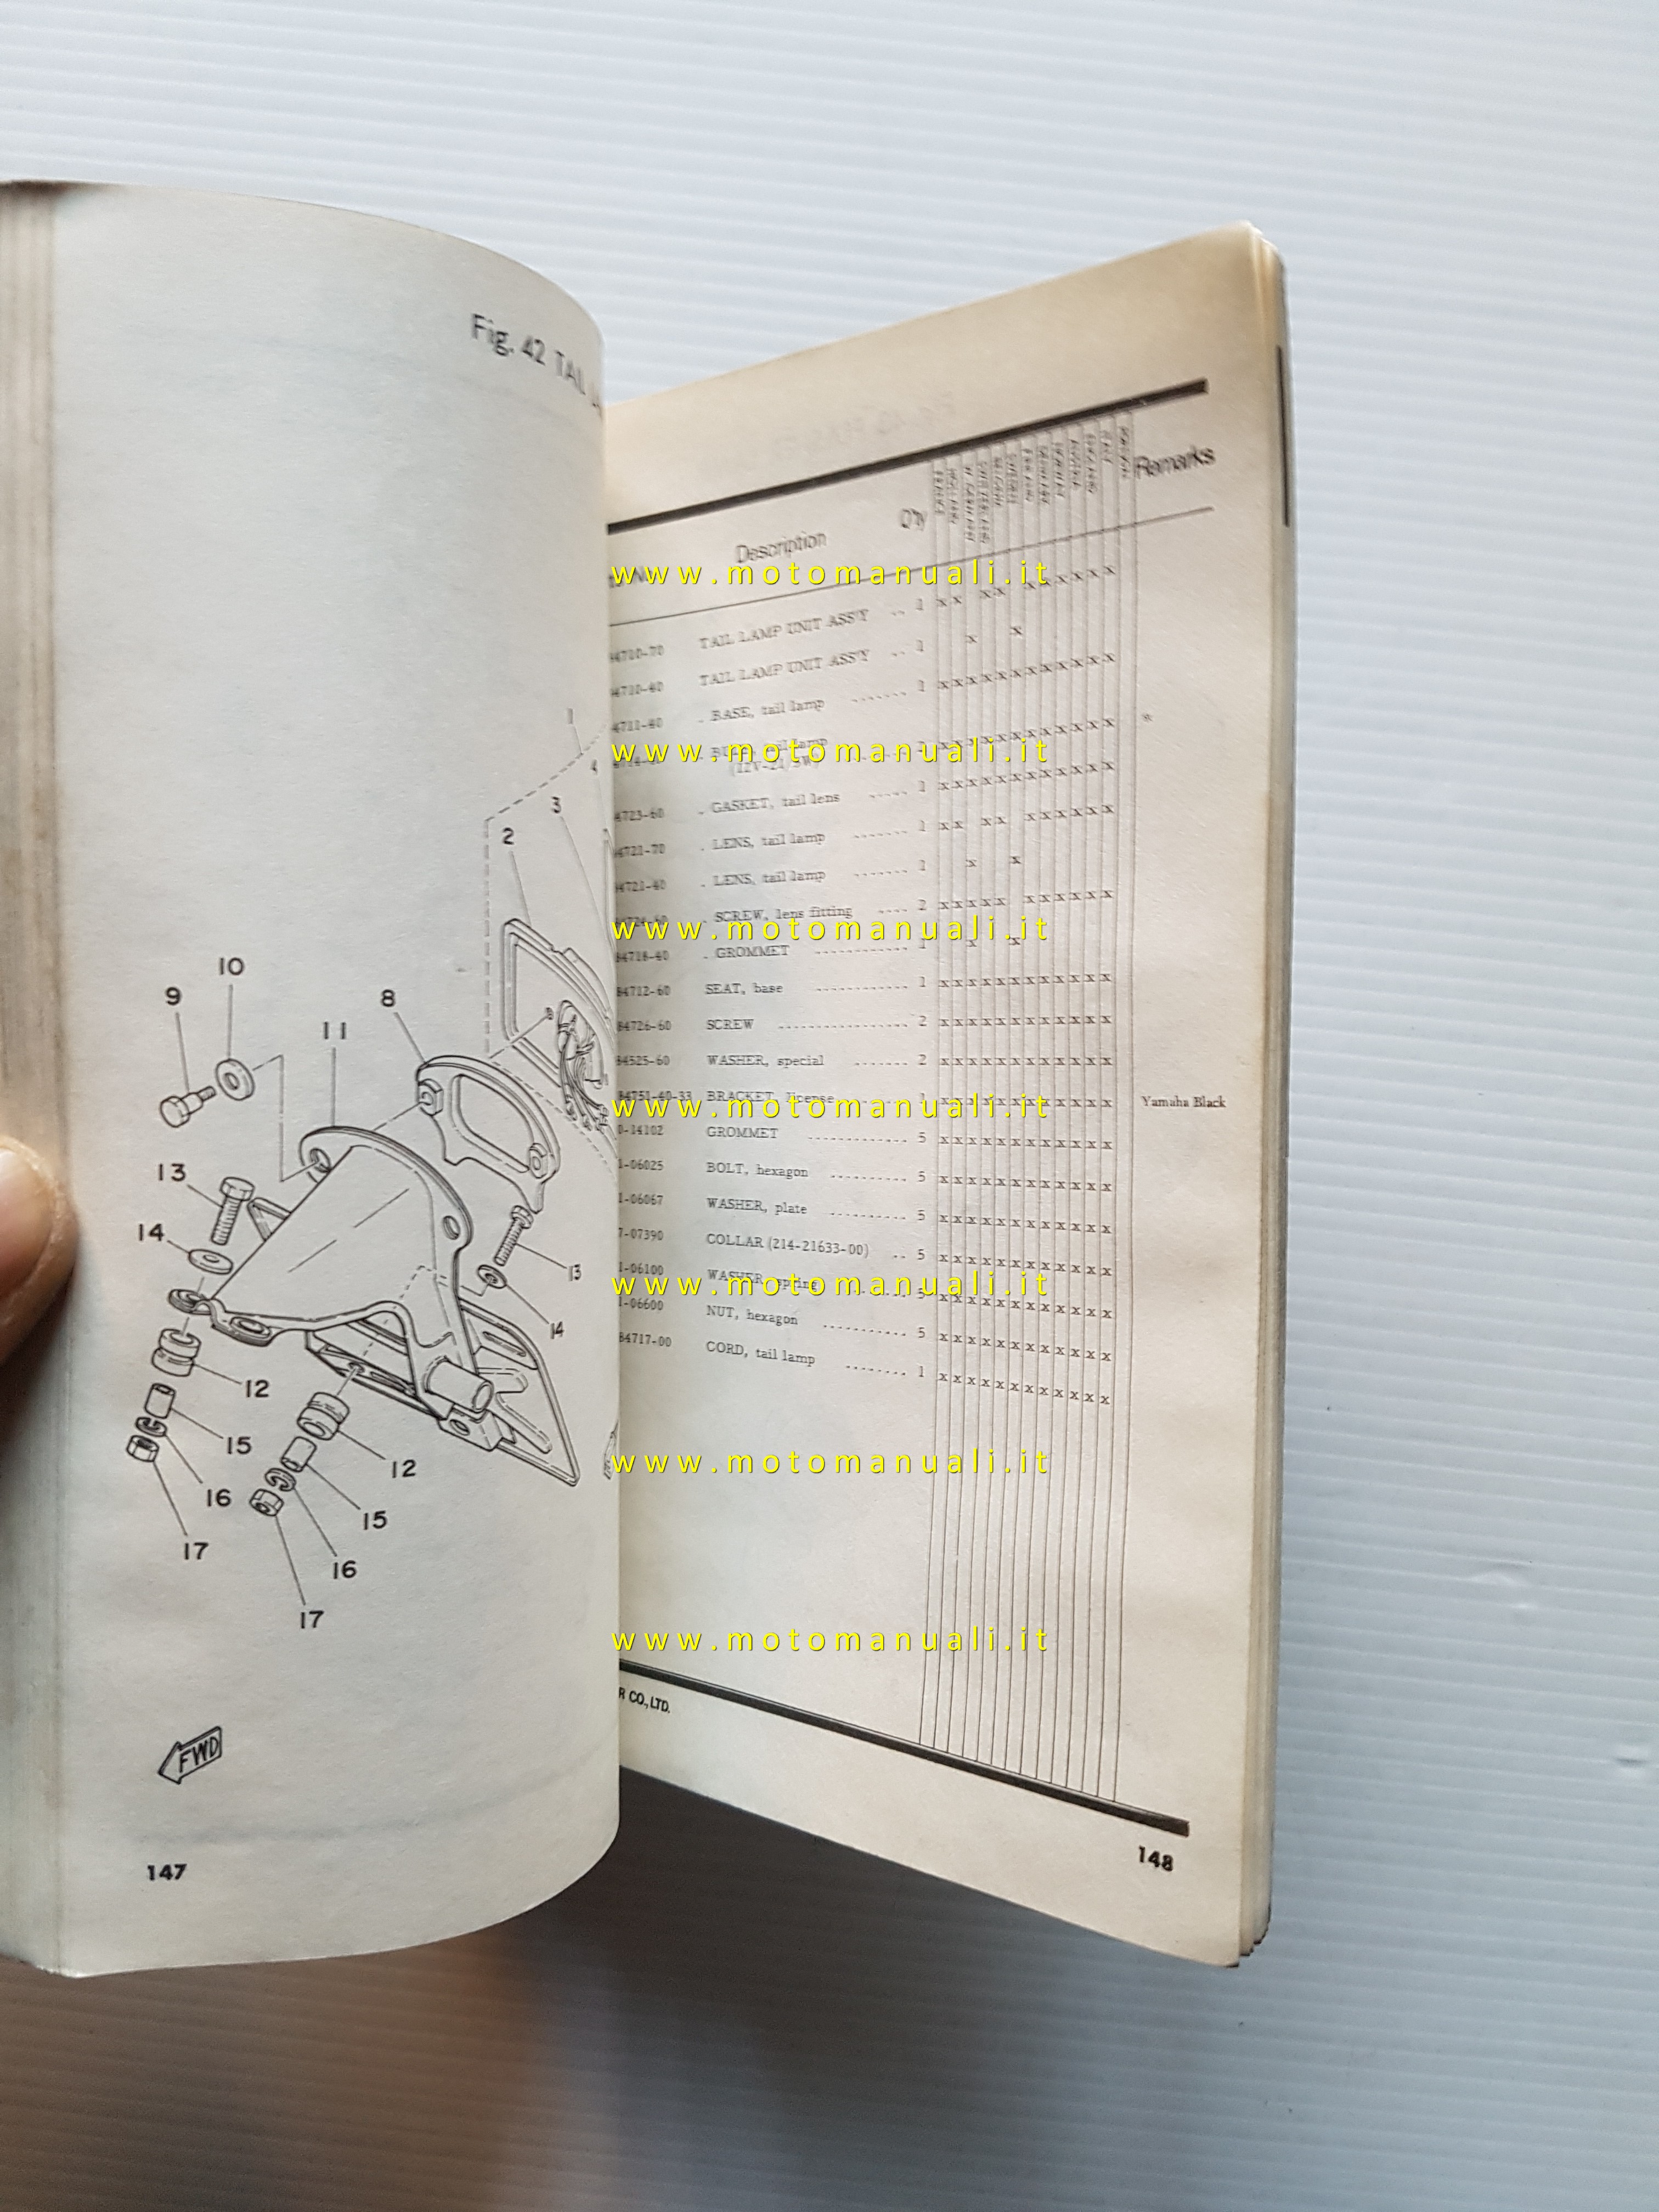 Fig. 42 TAIL
1
4
3
2
10
9
8
11
13
14
13
14
12
15
12
16
15
17
16
17
FWD
147
Description
Q'ty
Remarks
84710-70 TAIL LAMP UNIT ASS'Y .. 1 x x x x x x x x x x
84710-40 TAIL LAMP UNIT ASS'Y .. 1 x x
84711-40 . BASE, tail lamp ....... 1 x x x x x x x x x x x x
. BULB, tail lamp 2 x x x x x x x x x x x x *
(12V-21/5W)
84723-60 . GASKET, tail lens ..... 1 x x x x x x x x x x x x
84721-70 . LENS, tail lamp ....... 1 x x x x x x x x x x
84721-40 . LENS, tail lamp ....... 1 x x
84724-60 . SCREW, lens fitting .... 2 x x x x x x x x x x x
84718-40 . GROMMET ............ 1 x x
84712-60 SEAT, base ............ 1 x x x x x x x x x x x x
84726-60 SCREW ................. 2 x x x x x x x x x x x x
84525-60 WASHER, special ....... 2 x x x x x x x x x x x x
84751-40-33 BRACKET, license 1 x x x x x x x x x x x x Yamaha Black
0-14102 GROMMET ............ 5 x x x x x x x x x x x x
1-06025 BOLT, hexagon .......... 5 x x x x x x x x x x x x
1-06067 WASHER, plate .......... 5 x x x x x x x x x x x x
7-07390 COLLAR (214-21633-00) .. 5 x x x x x x x x x x x x
1-06100 WASHER, spring 5 x x x x x x x x x x x x
1-06600 NUT, hexagon ............ 5 x x x x x x x x x x x x
84717-00 CORD, tail lamp ........ 1 x x x x x x x x x x x x
R CO., LTD.
148
www.motomanuali.it
www.motomanuali.it
www.motomanuali.it
www.motomanuali.it
www.motomanuali.it
www.motomanuali.it
www.motomanuali.it